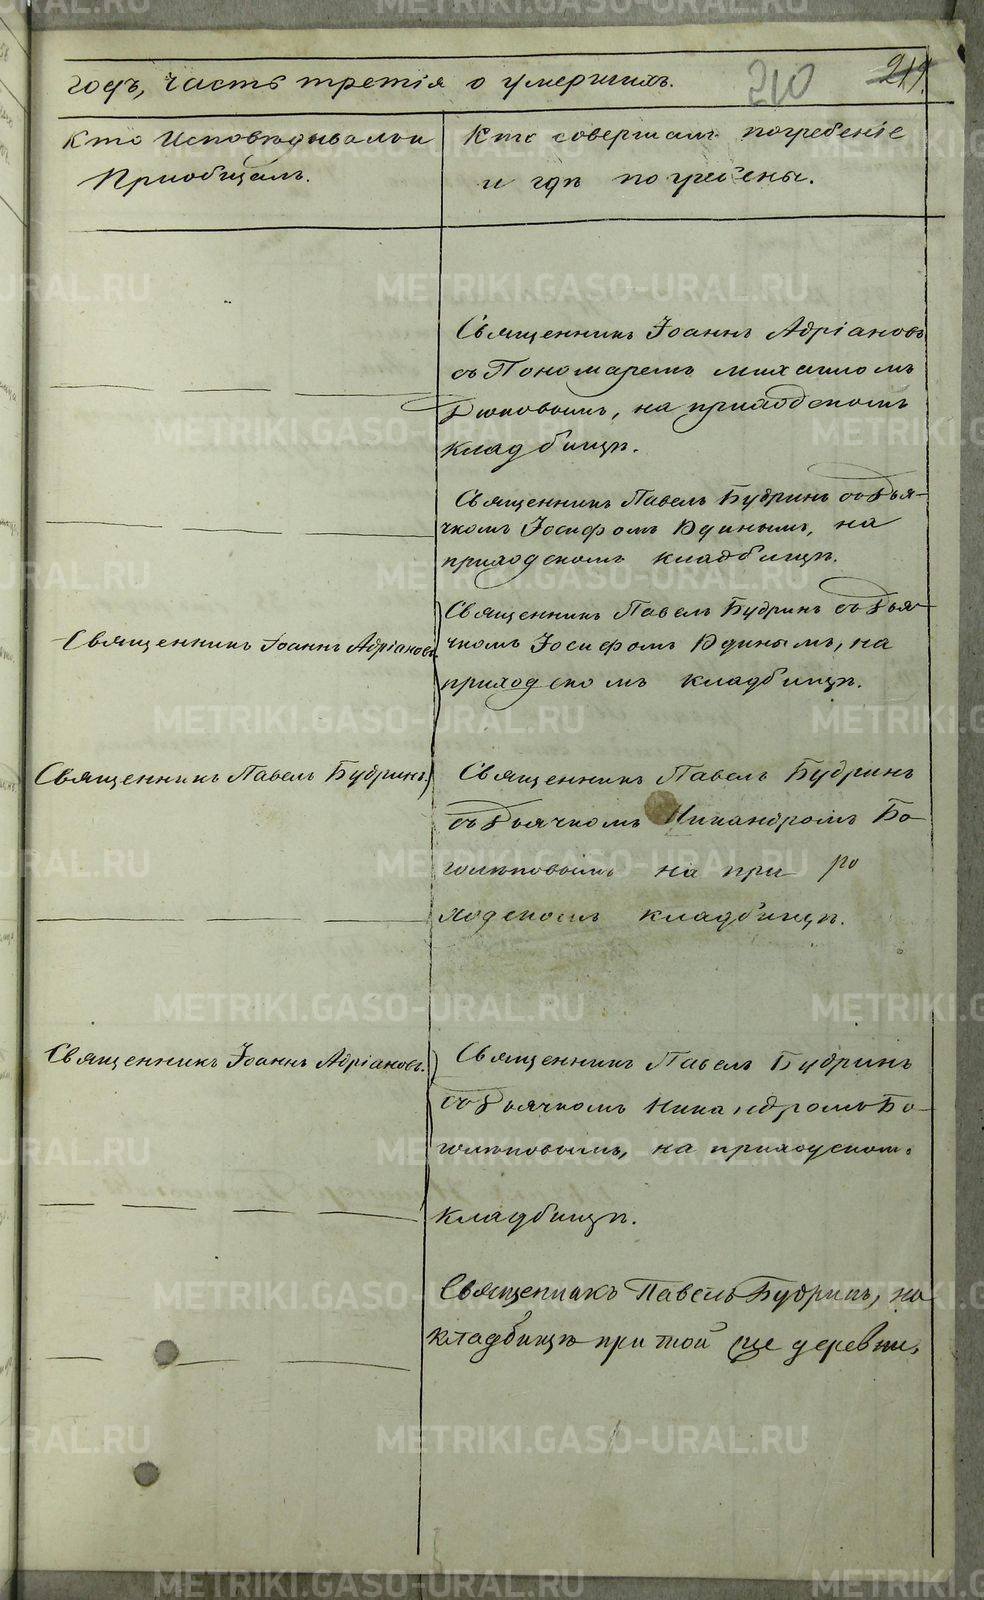 годъ, часть третія о умершихъ.
210
211
Кто Исповѣдывалъ и
Приобщалъ.
Кто совершалъ погребеніе
и гдѣ погребены.
Священникъ Іоаннъ Адріановъ
съ Пономаремъ михаиломъ
на приходскомъ
кладбищѣ.
Священникъ Павелъ Будринъ съ Дья-
чкомъ Іосифомъ Юдинымъ, на
приходскомъ кладбищѣ.
Священникъ Іоаннъ Адріановъ.
Священникъ Павелъ Будринъ съ Дья-
чкомъ Іосифомъ Юдинымъ, на
приходскомъ кладбищѣ.
Священникъ Павелъ Будринъ
Священникъ Павелъ Будринъ
съ Дьячкомъ Никандромъ Бо-
голѣповымъ на при
ходскомъ кладбищѣ.
Священникъ Іоаннъ Адріановъ.
Священникъ Павелъ Будринъ
съ Дьячкомъ Никандромъ Бо-
голѣповымъ, на приходскомъ
кладбищѣ.
Священникъ Павелъ Будринъ, на
кладбищѣ при той же деревни,
METRIKI.GASO-URAL.RU